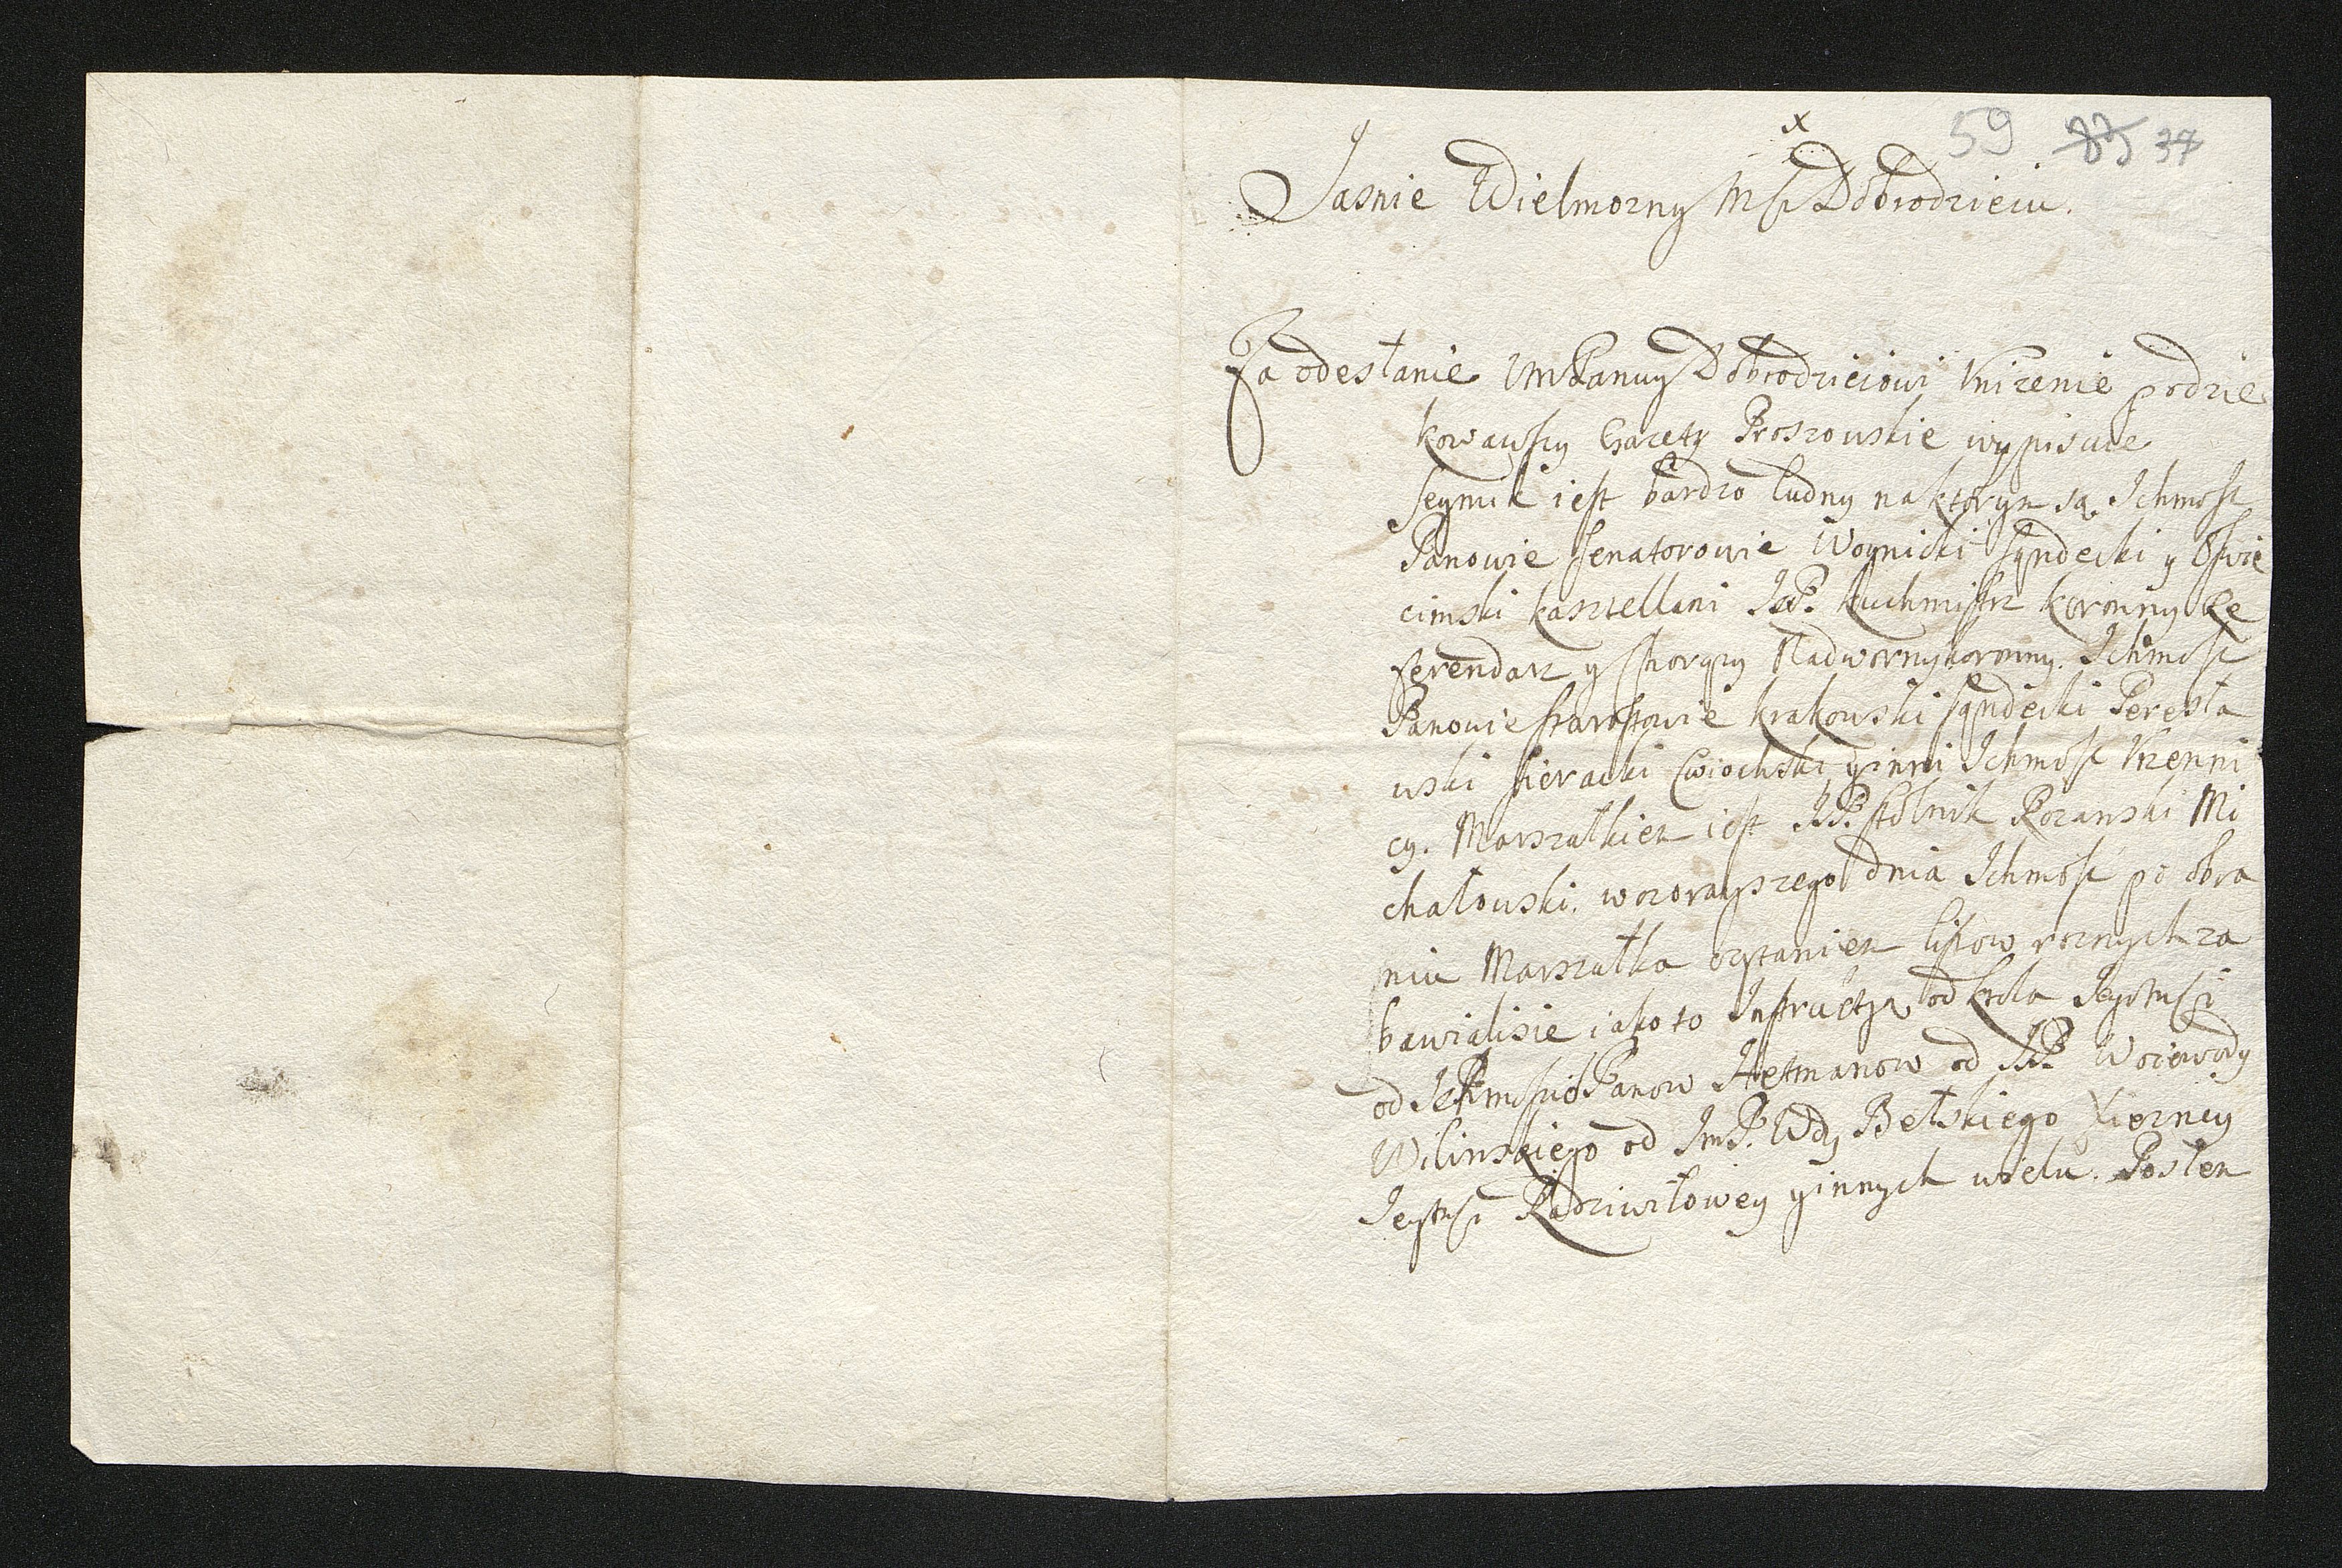 x
59 85 37
Jasnie Wielmozny Msci Dobrodzieiu.
Za odesłanie VmPanuy Dobrodzieiowi Vnizenie podzie
kowawszy Gazety Proszowskie wypisuie
Seymik iest bardzo ludny na ktorym są Ichmosc
Panowie Senatorowie Woynicki Sąndecki y Oswie
cimski kasztellani JeP. kuchmistrz koronny Re
ferendarz y Chorązy Nadworny koronny. Ichmosc
Panowie starostowie krakowski sąndecki Peresła
wski sieracki y inni Ichmosc Vrzenni
cy. Marszałkiem iest JP. stolnik Rozanski Mi
chałowski. wczorayszego dnia Ichmosc po obra
niu Marszałka czytaniem listow roznych za
bawialisie iako to Instructyi od krola Jegomsci
od Panow Hetmanow od JP. Woiewody
Wilinskiego od ImP. Wdy Bełskiego Xiezney
Jeymsci Radziwiłowey y innych wielu. Posłem